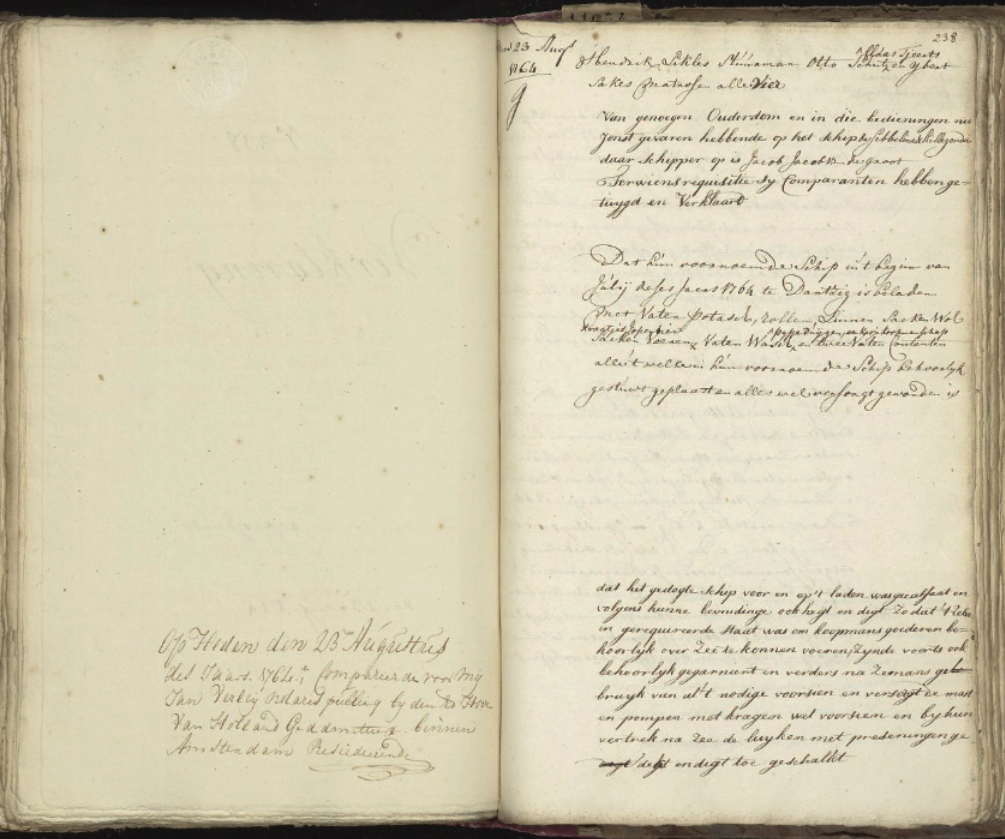 Op Heden den 23 Augustus
des Jaars 1764 Compareerde voor my
Jan Verleij notaris publicq by den Hove
Van Holland Geadmitteerd binnen
Amsterdam Residerende
238
23 Aug
1764
Hendrik Sikles Stuurman Otto Schutz en Ybert
Sakes Matrosen alle Vier
Van genoegen Ouderdom en in die bedieningen nu
Jonst gevaren hebbende op het schip
daar schipper op is Jacob Jacobs de Groot
Terwiens requisitie sy Comparanten hebben ge-
tuygd en Verklaard
Dat hun voornoemde Schip in't begin van
July deses Jaars 1764 te Dantzig is beladen
met Vaten Potasch, rollen Linnen Sacken Wol
Sacken Veeren, Vaten Wasch, en twee Vaten Contenten
alle't welke in hun voornoemde Schip behoorlyk
gestuwt geplaast en alles wel versorgt geworden is
dat het gedogte schip voor en op't laden was gecalfaat en
volgens hunne bevindinge ook hegt en digt Zo dat 't Zelve
in gerequireerde staat was om koopmans goederen be-
hoorlyk over Zee te konnen voeren, Zynde voorts ook
behoorlyk gegarniert en verders na Zeemans ge
bruyk van al't nodige voorsien en versorgt de mast
en pompen met kragen wel voorsien en by hun
vertrek na Zee de luyken met presenningen ge
en digt toe geschalkt